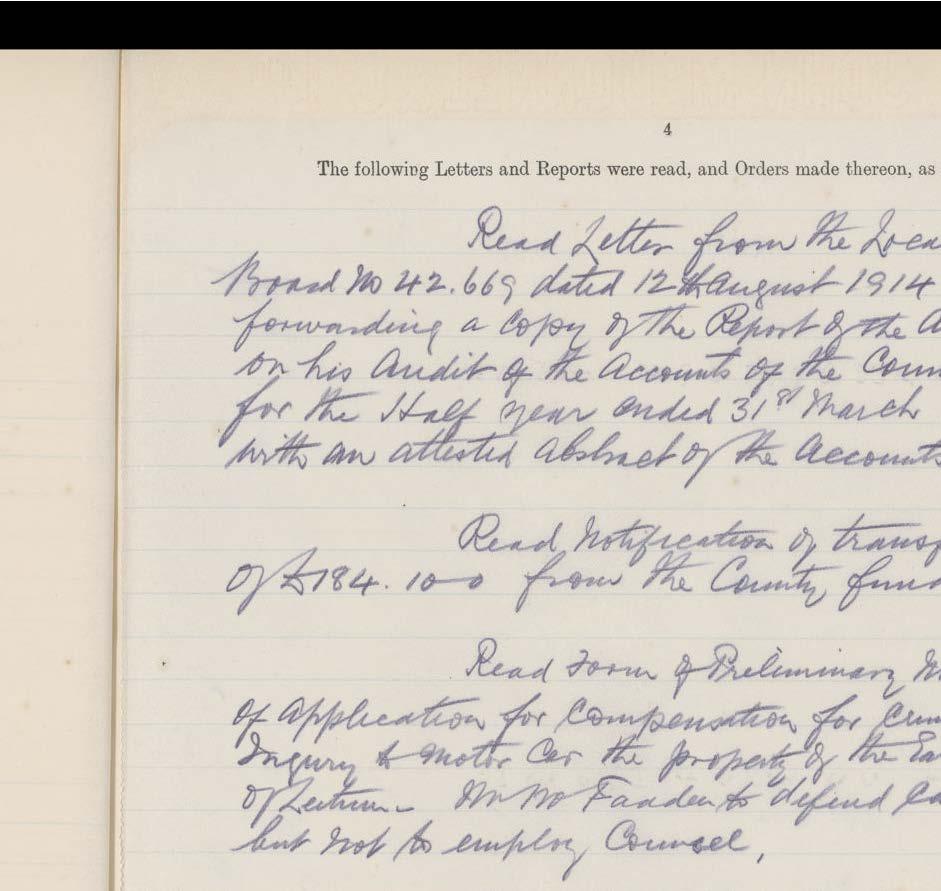 4
The following Letters and Reports were read, and Orders made thereon, as
Read Letter from the Loca
Board No 42.669 dated 12th August 1914
forwarding a copy of the Report of the A
on his Audit of the Accounts of the Coun
for the Half year ended 31st March
with an attested Abstract of the Accounts
Read Notification of transf
of £184.10-0 from the County fund
Read Form of Preliminary No
of Application for Compensation for Crim
Injury to Motor Car the property of the Ea
of Leitrim. Mr to defend Ca
but not to employ Counsel,